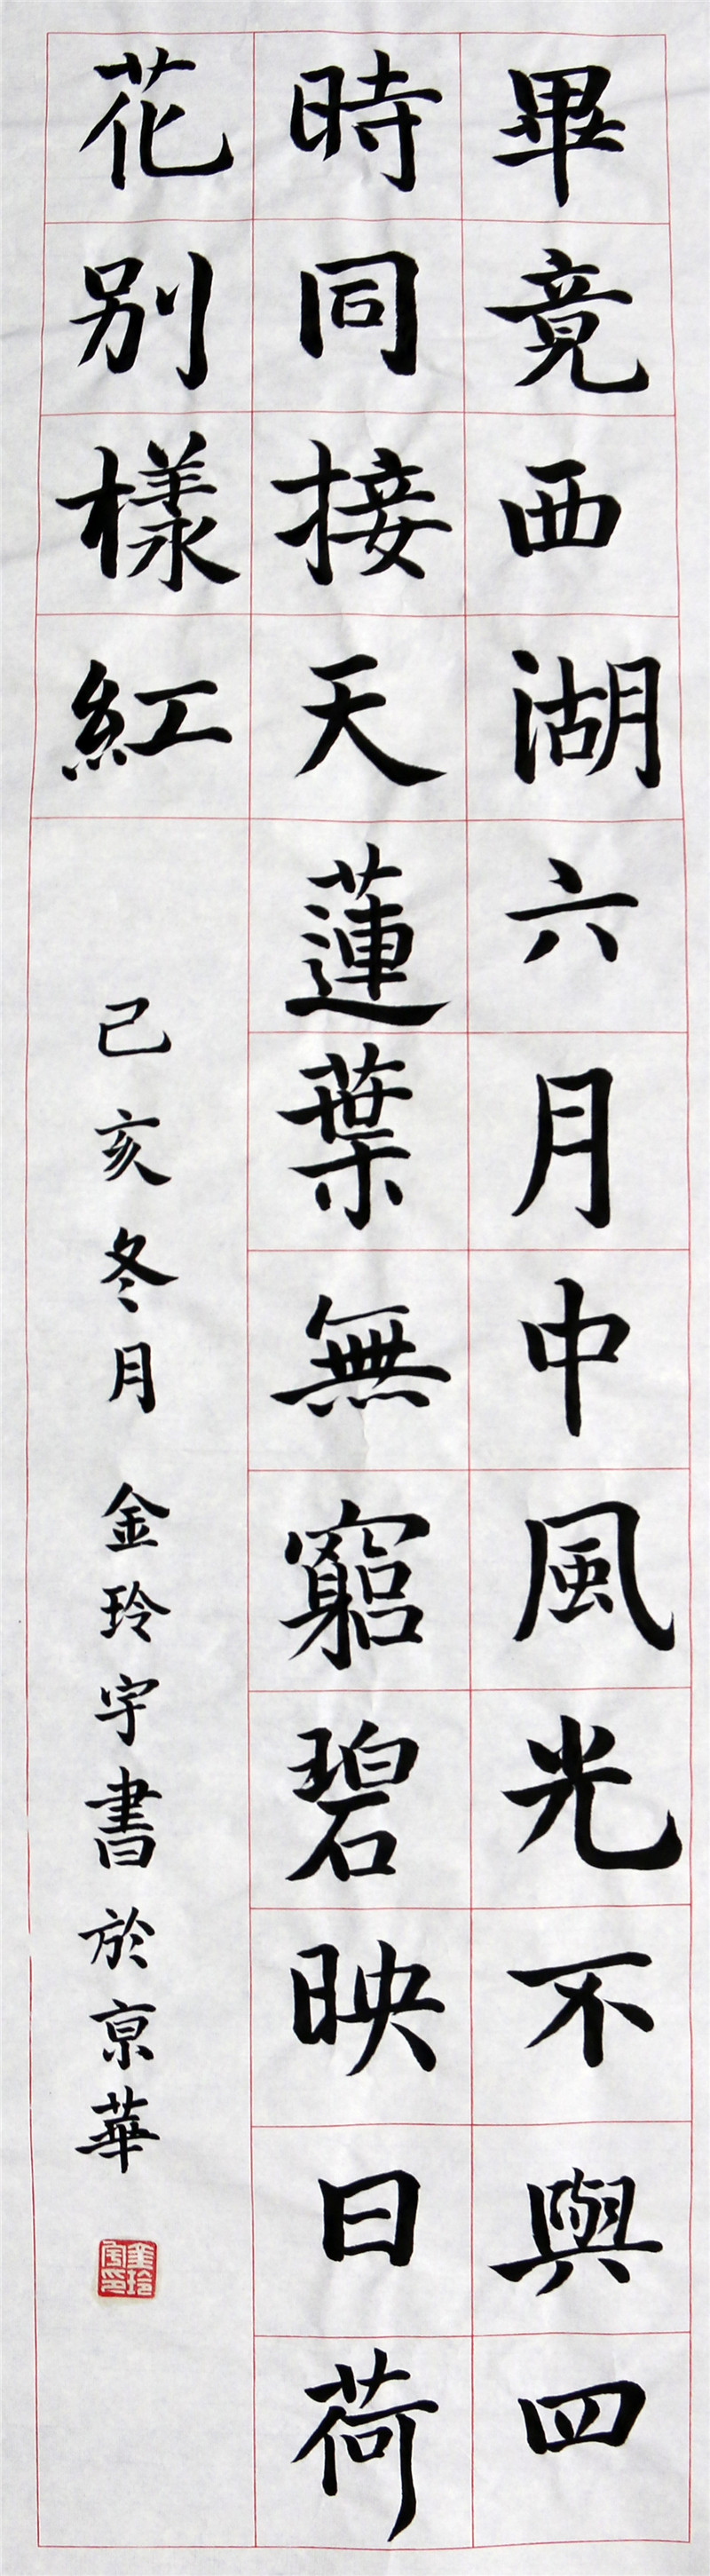 畢竟西湖六月中風光不與四
時同接天蓮葉無窮碧映日荷
花别樣紅
己亥冬月 金玲宇書於京華
金玲宇印